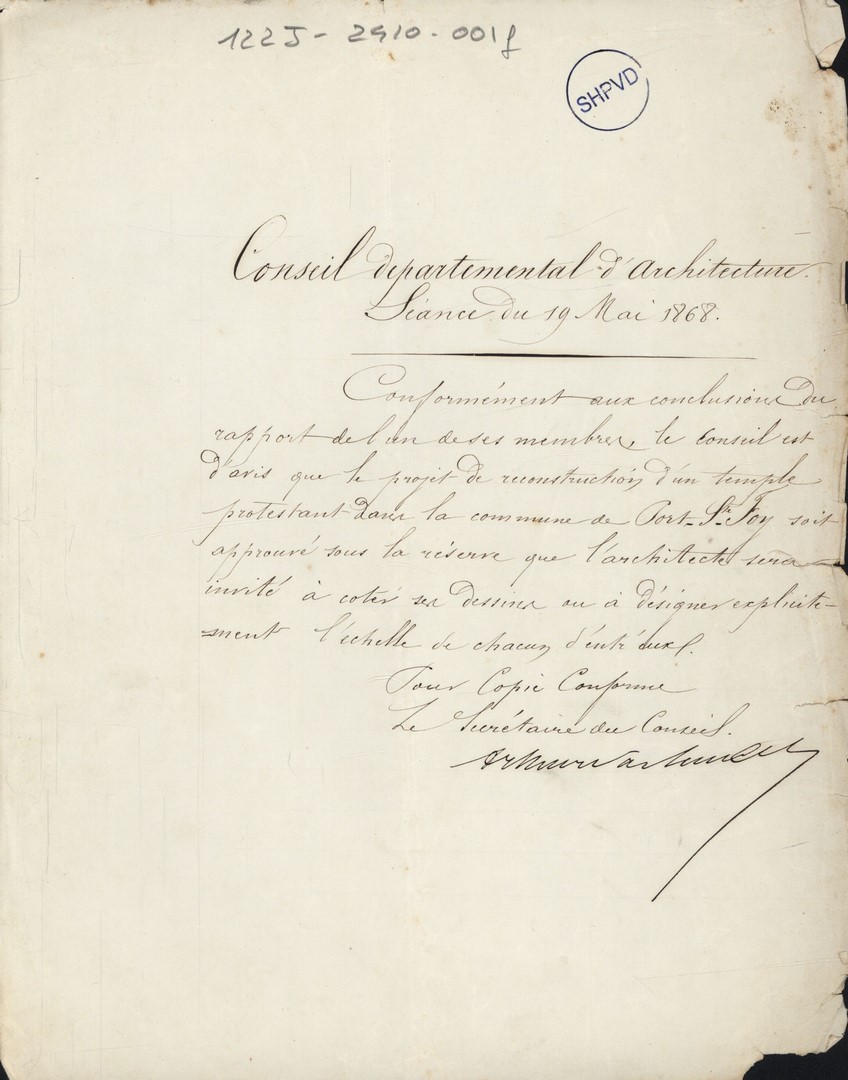 122J - 2910 - 001f
SHPVD
Conseil departemental d'Architecture.
Séance du 19 Mai 1868.
Conformément aux conclusions du
rapport de l'un de ses membres, le Conseil est
d'avis que le projet de reconstruction d'un temple
protestant dans la commune de Port-Ste Foy soit
approuvé sous la réserve que l'architecte sera
invité à coter ses dessins ou à désigner explicite-
-ment l'échelle de chacun d'entr'eux.
Pour Copie Conforme
Le Secrétaire du Conseil.